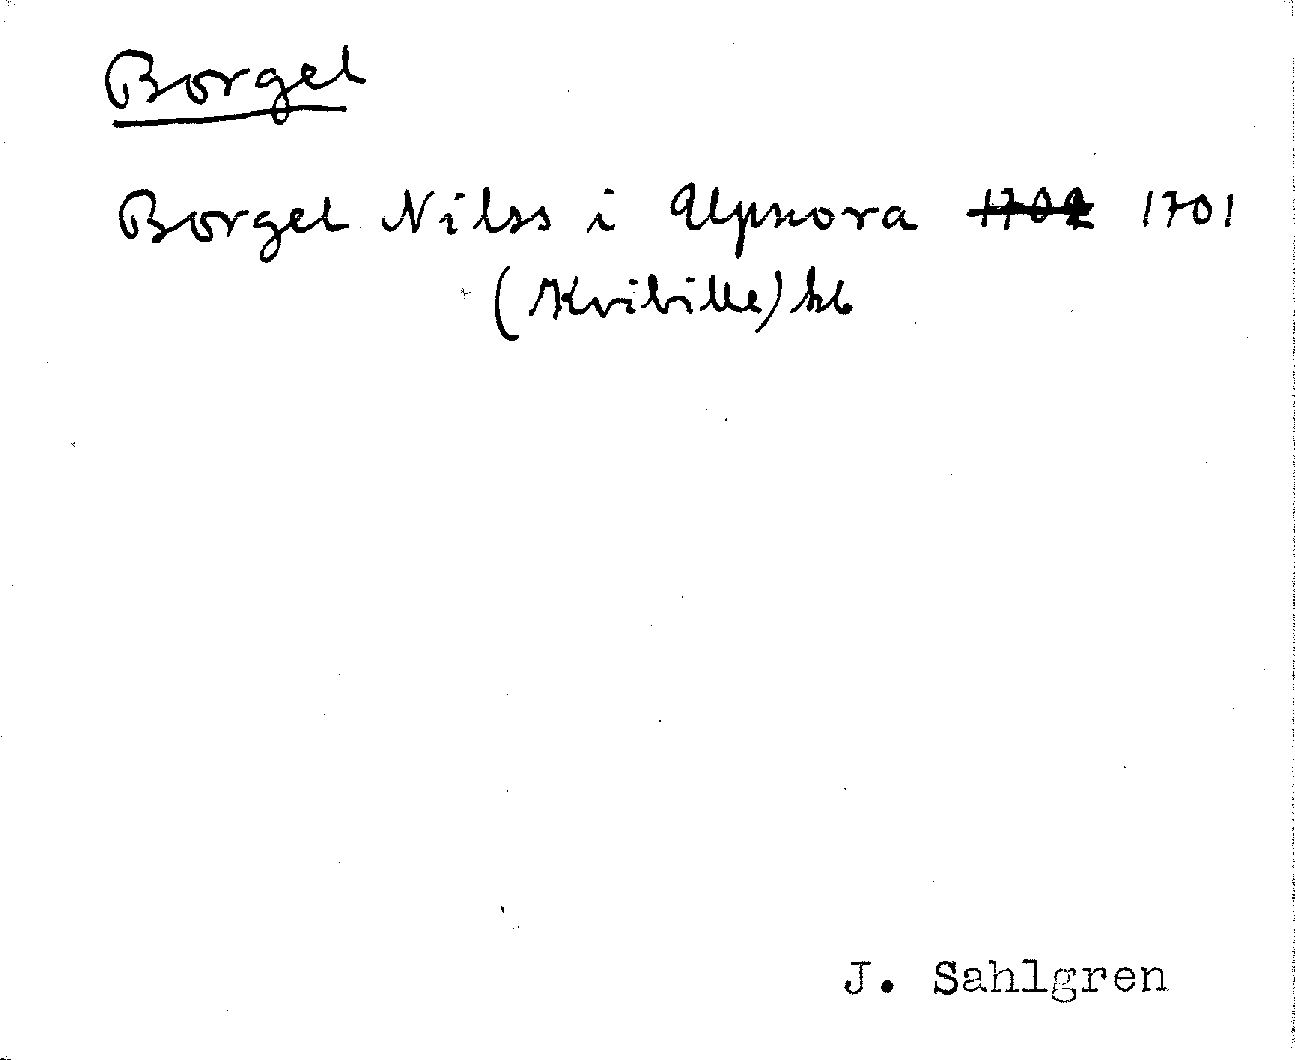 Borgel
Borgel Nilss i Alpnora 1701
(Kvibille) kb
J. Sahlgren